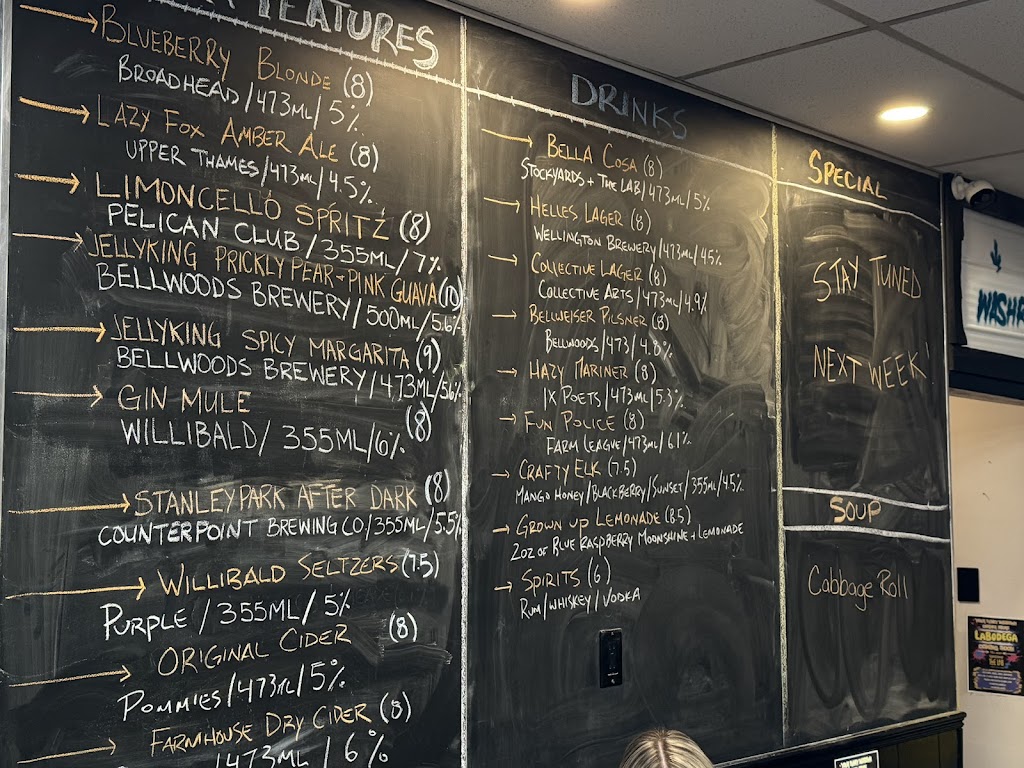 FEATURES
BLUEBERRY BLONDE (8)
BROADHEAD/473ML/5%
LAZY FOX AMBER ALE (8)
UPPER THAMES/473ML/4.5%
LIMONCELLO SPRITZ (8)
PELICAN CLUB/355ML/7%
JELLYKING PRICKLY PEAR + PINK GUAVA (10)
BELLWOODS BREWERY/500ML/5.6%
JELLYKING SPICY MARGARITA (9)
BELLWOODS BREWERY/473ML/5.6%
GIN MULE (8)
WILLIBALD/355ML/6%
STANLEY PARK AFTER DARK (8)
COUNTERPOINT BREWING CO/355ML/5.5%
WILLIBALD SELTZERS (7.5)
PURPLE/355ML/5%
ORIGINAL CIDER (8)
POMMIES/473ML/5%
FARMHOUSE DRY CIDER (8)
/473ML/6%
DRINKS
BELLA COSA (8)
STOCKYARDS + THE LAB/473ML/5%
HELLES LAGER (8)
WELLINGTON BREWERY/473ML/4.5%
COLLECTIVE LAGER (8)
COLLECTIVE ARTS/473ML/4.9%
BELLWEISER PILSNER (8)
BELLWOODS/473/4.8%
HAZY MARINER (8)
IX POETS/473ML/5.3%
FUN POLICE (8)
FARM LEAGUE/473ML/6.1%
CRAFTY ELK (7.5)
MANGO HONEY/BLACKBERRY/SUNSET/355ML/4.5%
GROWN UP LEMONADE (8.5)
2OZ OF BLUE RASPBERRY MOONSHINE + LEMONADE
SPIRITS (6)
RUM/WHISKEY/VODKA
SPECIAL
STAY TUNED
NEXT WEEK!
SOUP
Cabbage Roll
LABODEGA